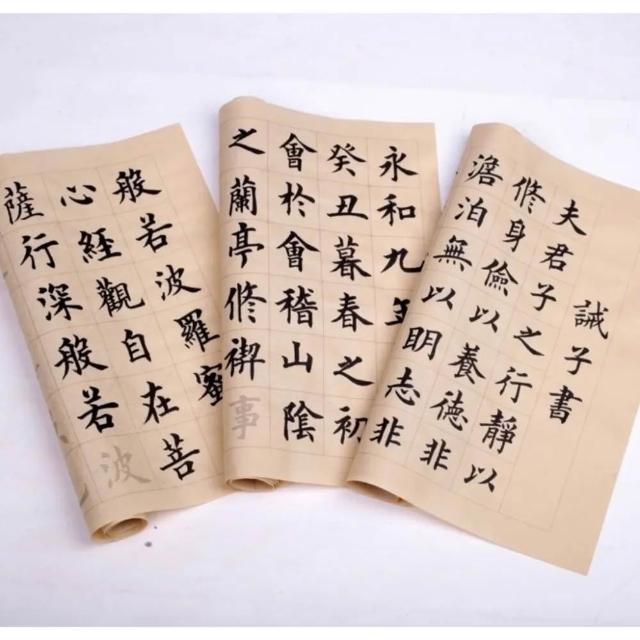 誡子書
夫君子之行靜以
修身儉以養德非
澹泊無以明志非
永和九年
癸丑暮春之初
會於會稽山陰
之蘭亭修禊事
般若波羅蜜
心經觀自在菩
薩行深般若波